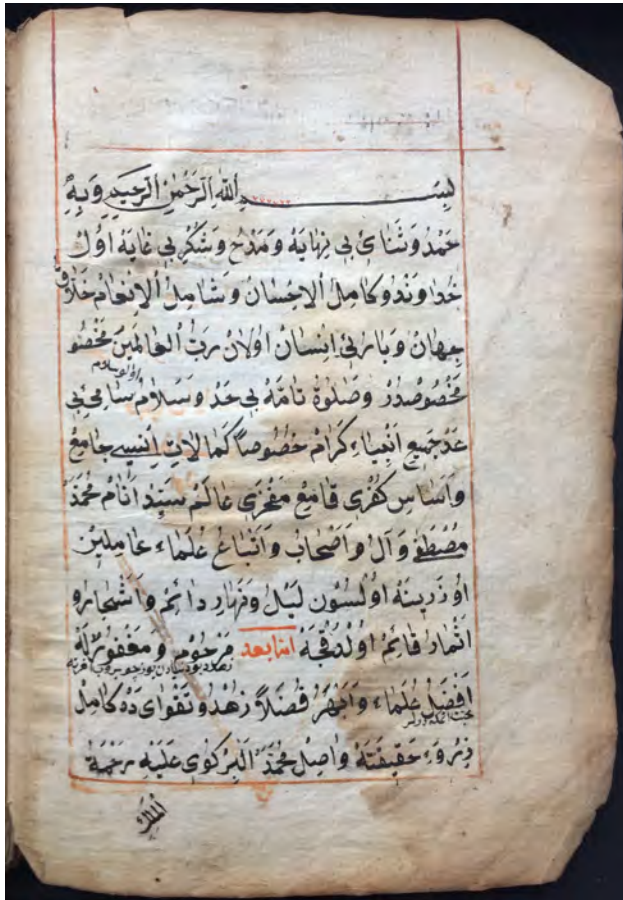 بِسْمِ اللهِ الرَّحْمٰنِ الرَّحِيمِ وَبِهِ
حَمْدُ وَثَنَاىُ بى نِهَايَهْ وَمَدْحُ وَشُكْرِ بى غَايَهْ اوُلْ
خُدَاوَنْدُ وكَامِلُ الْاِحْسَانْ وَشَامِلُ الْاِنْعَامْ خَلَّاقِ
جِهَانْ وَبَارِئِ اِنْسَانْ اوُلَانْ رَبُّ الْعَالَمِينَ مَخْصُو
مَخْصُوصْدُرْ وَصَلٰوةِ تَامَّهُ بى حَدْ وَسَلَامِ سَامِئِ بى
عَدْ جَمِيعِ اَنْبِيَاءِ كَرَامْ خَصُوصًا كَمَالَاتِ اِنْسِيَّهْ جَامِعْ
وَاَسَاسِ كُفْرِى قَامِعْ مَفْخَرِى عَالَمْ سَيِّدِ اَنَامْ مُحَمَّدْ
مُصْطَفٰى وَآلُ وَاَصْحَابْ وَاَتْبَاعْ عُلَمَاءِ عَامِلِينْ
اوُزَرِينَهْ اوُلْسُونْ لَيْلُ وَنَهَارِ دَائِمْ وَاَشْجَارُ و
اَثْمَارْ قَائِمْ اوُلْدُقْجَهْ امّا بعد مَرْحُومْ وَمَغْفُورٌ لَهُ
اَفْضَلُ عُلَمَاءِ وَاَبْهَرُ فُضَلًا زُهْدُ وتَقْوَاىِ دَهْ كَامِلْ
ذِرْوَءِ حَقِيقَتَهْ وَاصِلْ مُحَمَّدْ اَلْبِرْكَوِى عَلَيْهِ رَحْمَةُ
الملك